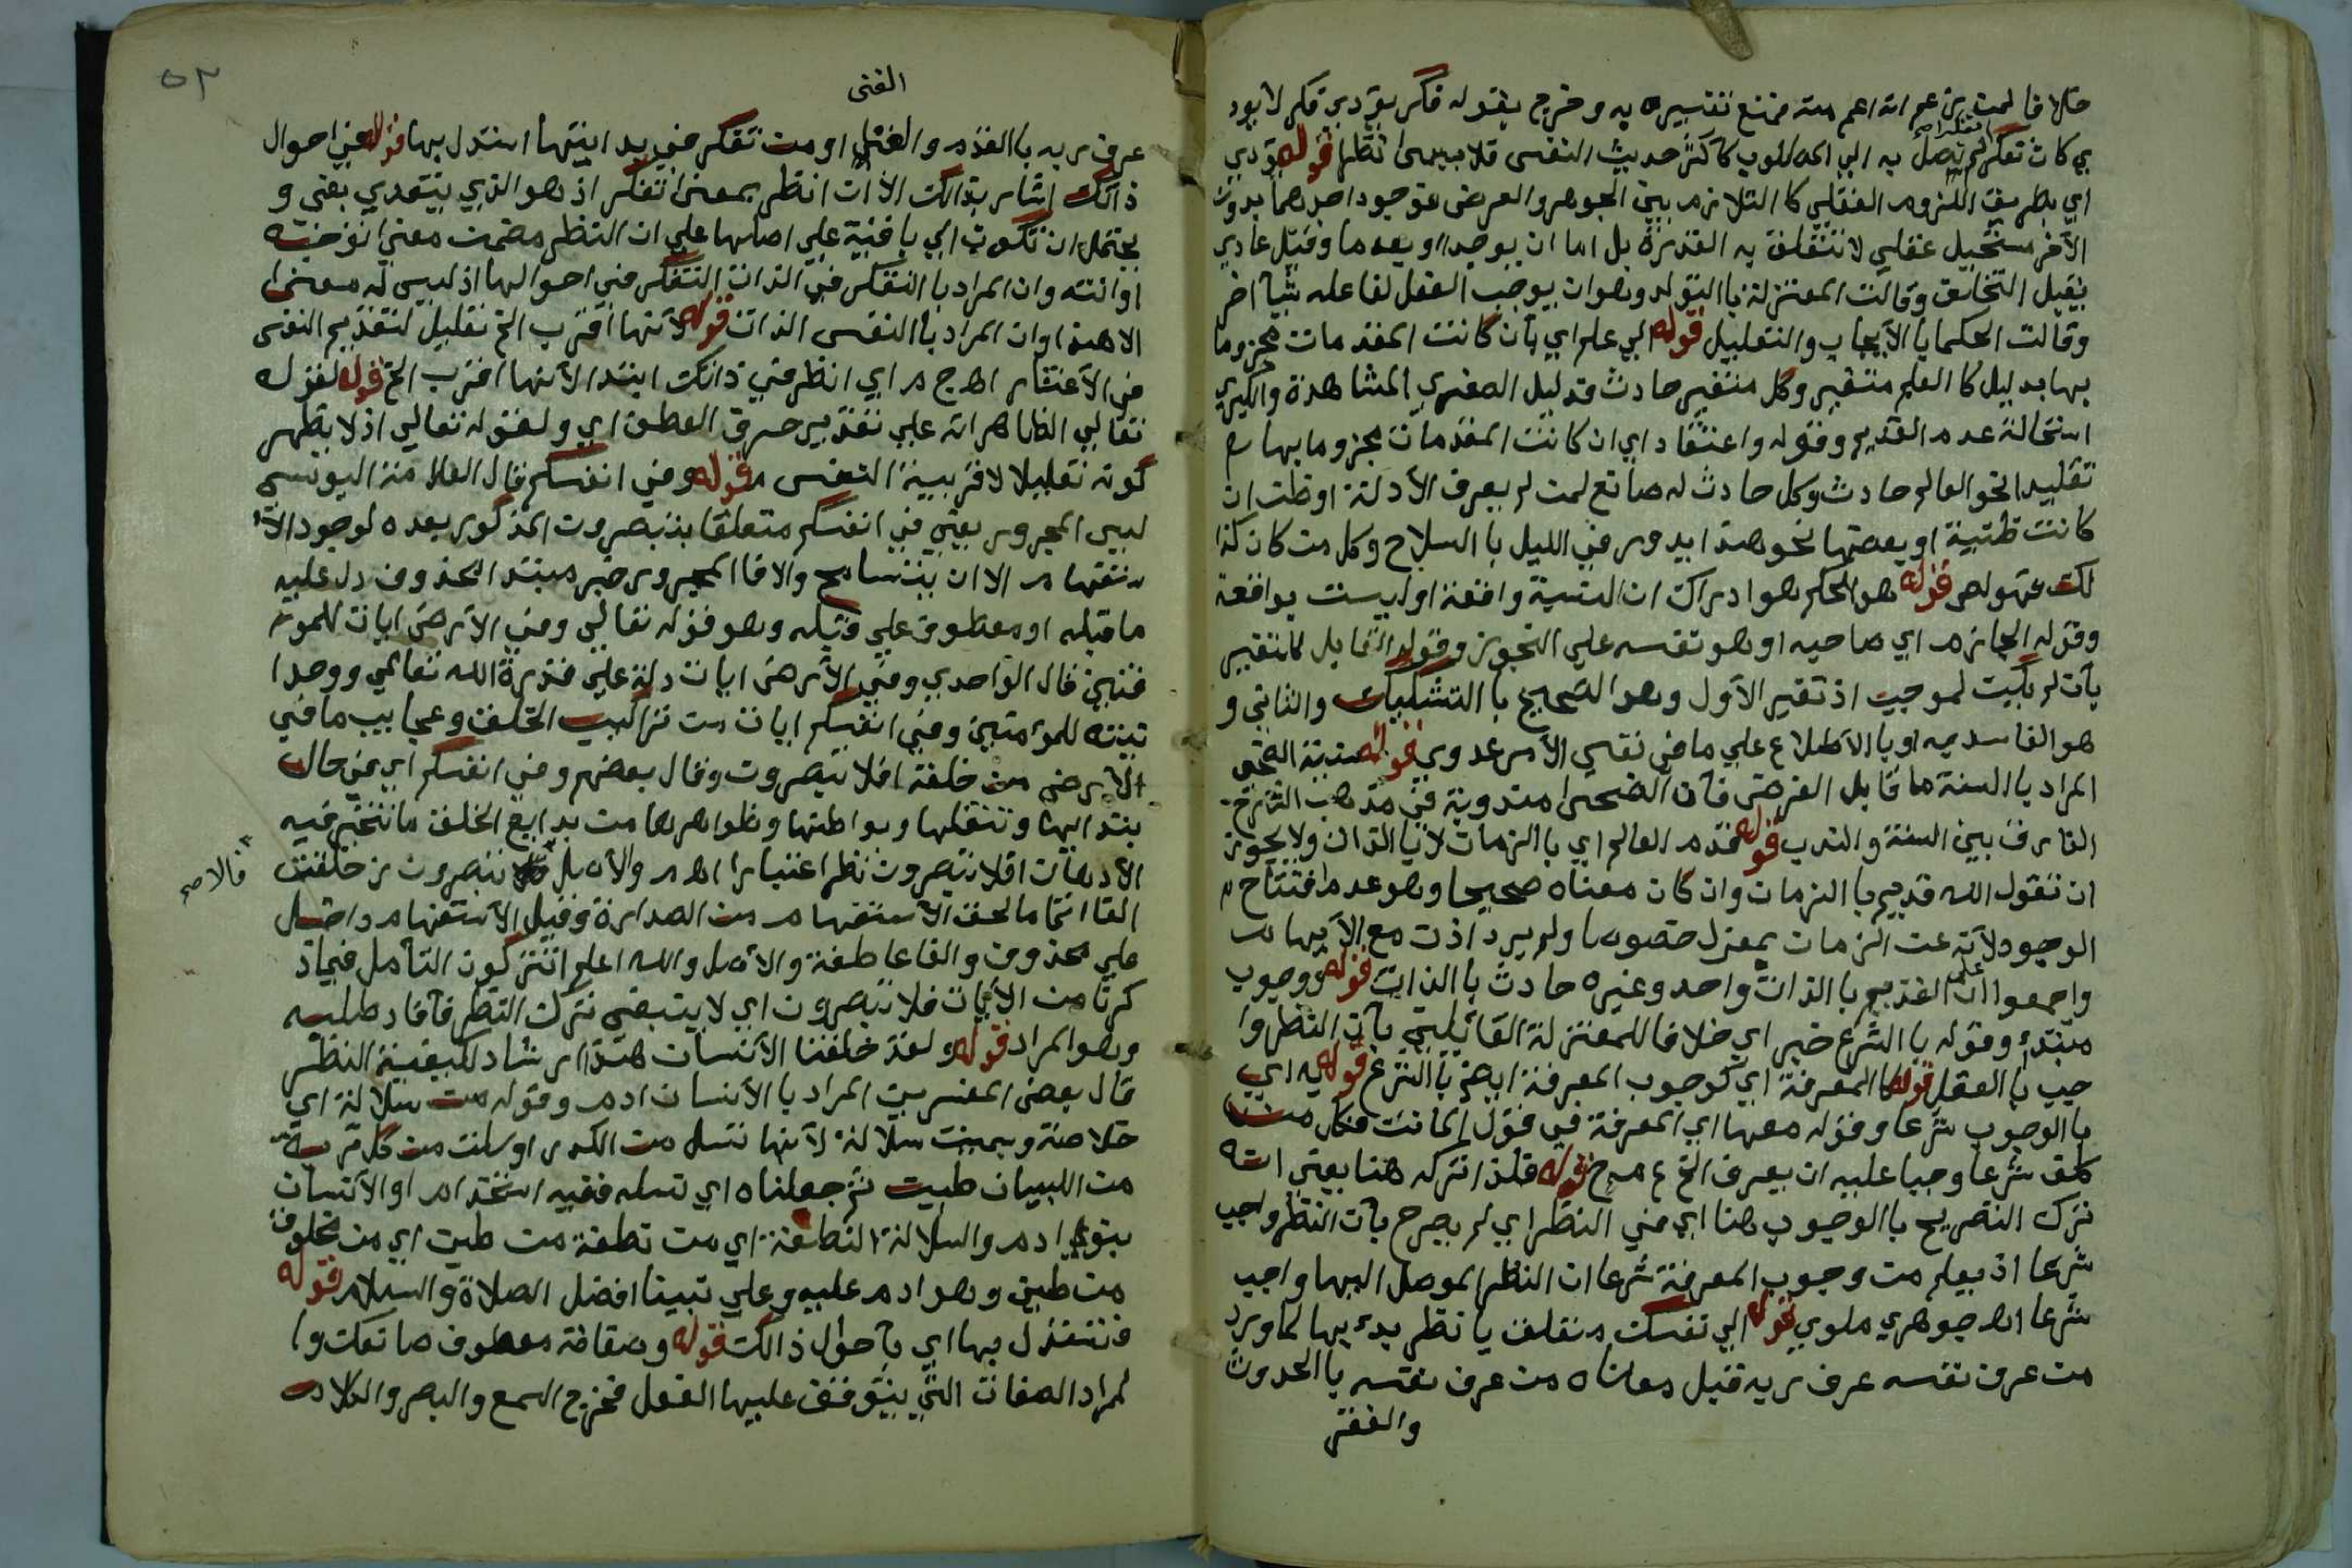 خلافا لمن زعم انه اعم منه فمنع تفسيره به وخرج بقوله فكر يؤدي فكر لا يود
ي كان تفكر لم يصل به الي المطلوب كاكثر حديث النفس فلا يسمى نظرا قوله يؤدي
اي بطريق اللزوم العقلي كالتلازم بين الجوهر والعرض فوجود احدهما بدون
الآخر مستحيل عقلي لا تتعلق به القدرة بل اما ان يوجدا او يعدما وقيل عادي
يقبل التخلف وقالت المعتزلة با التولد وهو ان يوجب الفعل لفاعله شيأ اخر
وقالت الحكما با الأيجاب والتعليل قوله الي علم اي بأن كانت المقدمات مجزوما
بها بدليل كا العلم متغير وكل متغير حادث فدليل الصغرى المشاهدة والكبري
استحالة عدم القديم وقوله واعتقاد اي ان كانت المقدمات مجزوما بها مع
تقليد نحو العالم حادث وكل حادث له صانع لمن لم يعرف الأدلة او ظن ان
كانت ظنية او بعضها نحو هذا يدور في الليل با السلاح وكل من كان كذا
لك فهو لص قوله هو الحكم هو ادراك ان النسبة واقعة او ليست بواقعة
وقوله الجازم اي صاحبه او هو نفسه علي التجوز وقوله القابل للتغيير
بأن لم يكن لموجب اذ تغير الأول وهو الصحيح با التشكيك والثاني و
هو الفاسد به او با الاطلاع علي ما في نفس الأمر عدوي قوله سنية الضحى
المراد با السنة ما قابل الفرض فأن الضحى مندوبة في مذهب الشارح
الفارق بين السنة والندب قوله قدم العالم اي با الزمان لا با الذات ولا يجوز
ان نقول الله قديم با الزمان وان كان معناه صحيحا وهو عدم افتتاح
الوجود لأنه عن الزمان بمعزل خصوصا ولم يرد اذن مع الأيهام
واجمعوا على ان القديم با الذات واحد وغيره حادث با الذات قوله ووجوب
مبتدء وقوله با الشرع خبر اي خلافا للمعتزلة القائلين بأن النظر وا
جب با العقل قوله كا المعرفة اي كوجوب المعرفة ايضا با الشرع قوله به اي
با الوجوب شرعا وقوله معها اي المعرفة في قول المانن فكل من
كلف شرعا وجبا عليه ان يعرف الخ قوله فلذا تركه هنا يعني انه
ترك التصريح با الوجوب هنا اي في النظر اي لم يصرح بأن النظر واجب
شرعا اذ يعلم من وجوب المعرفة شرعا ان النظر الموصل اليها واجب
شرعا اهـ جوهري ملوي قوله الي نفسك متعلق با نظر بدء بها لما ورد
من عرف نفسه عرف ربه قيل معناه من عرف نفسه با الحدوث
والفقر
الغنى
عرف ربه با القدم والغنى او من تفكر في بدايتها استدل بها قوله في احوال
ذاتك اشار بذالك الأ ان انظر بمعنى تفكر اذ هو الذي يتعدي بفي و
يحتمل ان تكون الي باقية علي اصلها علي ان النظر مضمن معنى
وان المراد با التفكر في الذات التفكر في احوالها اذ ليس له معنى
الا هذا وان المراد با النفس الذات قوله لأنها اقرب الخ تعليل لتقديم النفس
في الأعتبار اهـ ج م اي انظر في ذاتك ابتداء لأنها اقرب الخ قوله لقوله
تعالي الظاهر انه علي تقدير حرف العطف اي ولقوله تعالي اذ لا يظهر
كونه تعليلا لاقربية النفس قوله وفي انفسكم قال العلامة اليوسي
ليس المجرور يعني في انفسكم متعلقا بتبصرون المذكور بعده لوجود الأ
ستفهام الا ان يتسامح والا فا المجرور خبر مبتدا محذوف دل عليه
ما قبله او معطوف علي قبله وهو قوله تعالي وفي الأرض ايات للموقـ
ـنين قال الواحدي وفي الأرض ايات دلة علي قدرة الله تعالي ووحدا
نيته للمؤمنين وفي انفسكم ايات من تراكيب الخلق وعجايب ما في
الأرض من خلقه افلا تبصرون وقال بعضهم وفي انفسكم اي في حال
ابتدائها وتنقلها وبواطنها وظواهرها من بدايع الخلق ما تتحير فيه
الأذهان افلا تبصرون نظر اعتبار اهـ والأصل تبصرون زحلقت
فالاصح
الفا انما لحق الأستفهام من الصدارة وقيل الأستفهام داخل
علي محذوف والفا عاطفة والأصل والله اعلم اتتركون التأمل فيما ذ
كرنا من الآيات فلا تبصرون اي لا ينبغي ترك النظر فأفاد طلبه
وهو المراد قوله ولقد خلقنا الأنسان هذا ارشاد لكيفية النظر
قال بعض المفسرين المراد با الأنسان ادم وقوله من سلالة اي
خلاصة وسميت سلالة لأنها تسل من الكدر او سلت من كل تربة
من البيان طين ثم جعلناه اي نسله ففيه استخدام او الأنسان
بنوا ادم والسلالة النطفة اي من نطفة من طين اي من مخلوق
من طين وهو ادم عليه وعلي نبينا افضل الصلاة والسلام قوله
فتستدل بها اي بأحوال ذالك قوله وصفاته معطوف صانعك وا
لمراد الصفات التي يتوقف عليها الفعل فخرج السمع والبصر والكلام